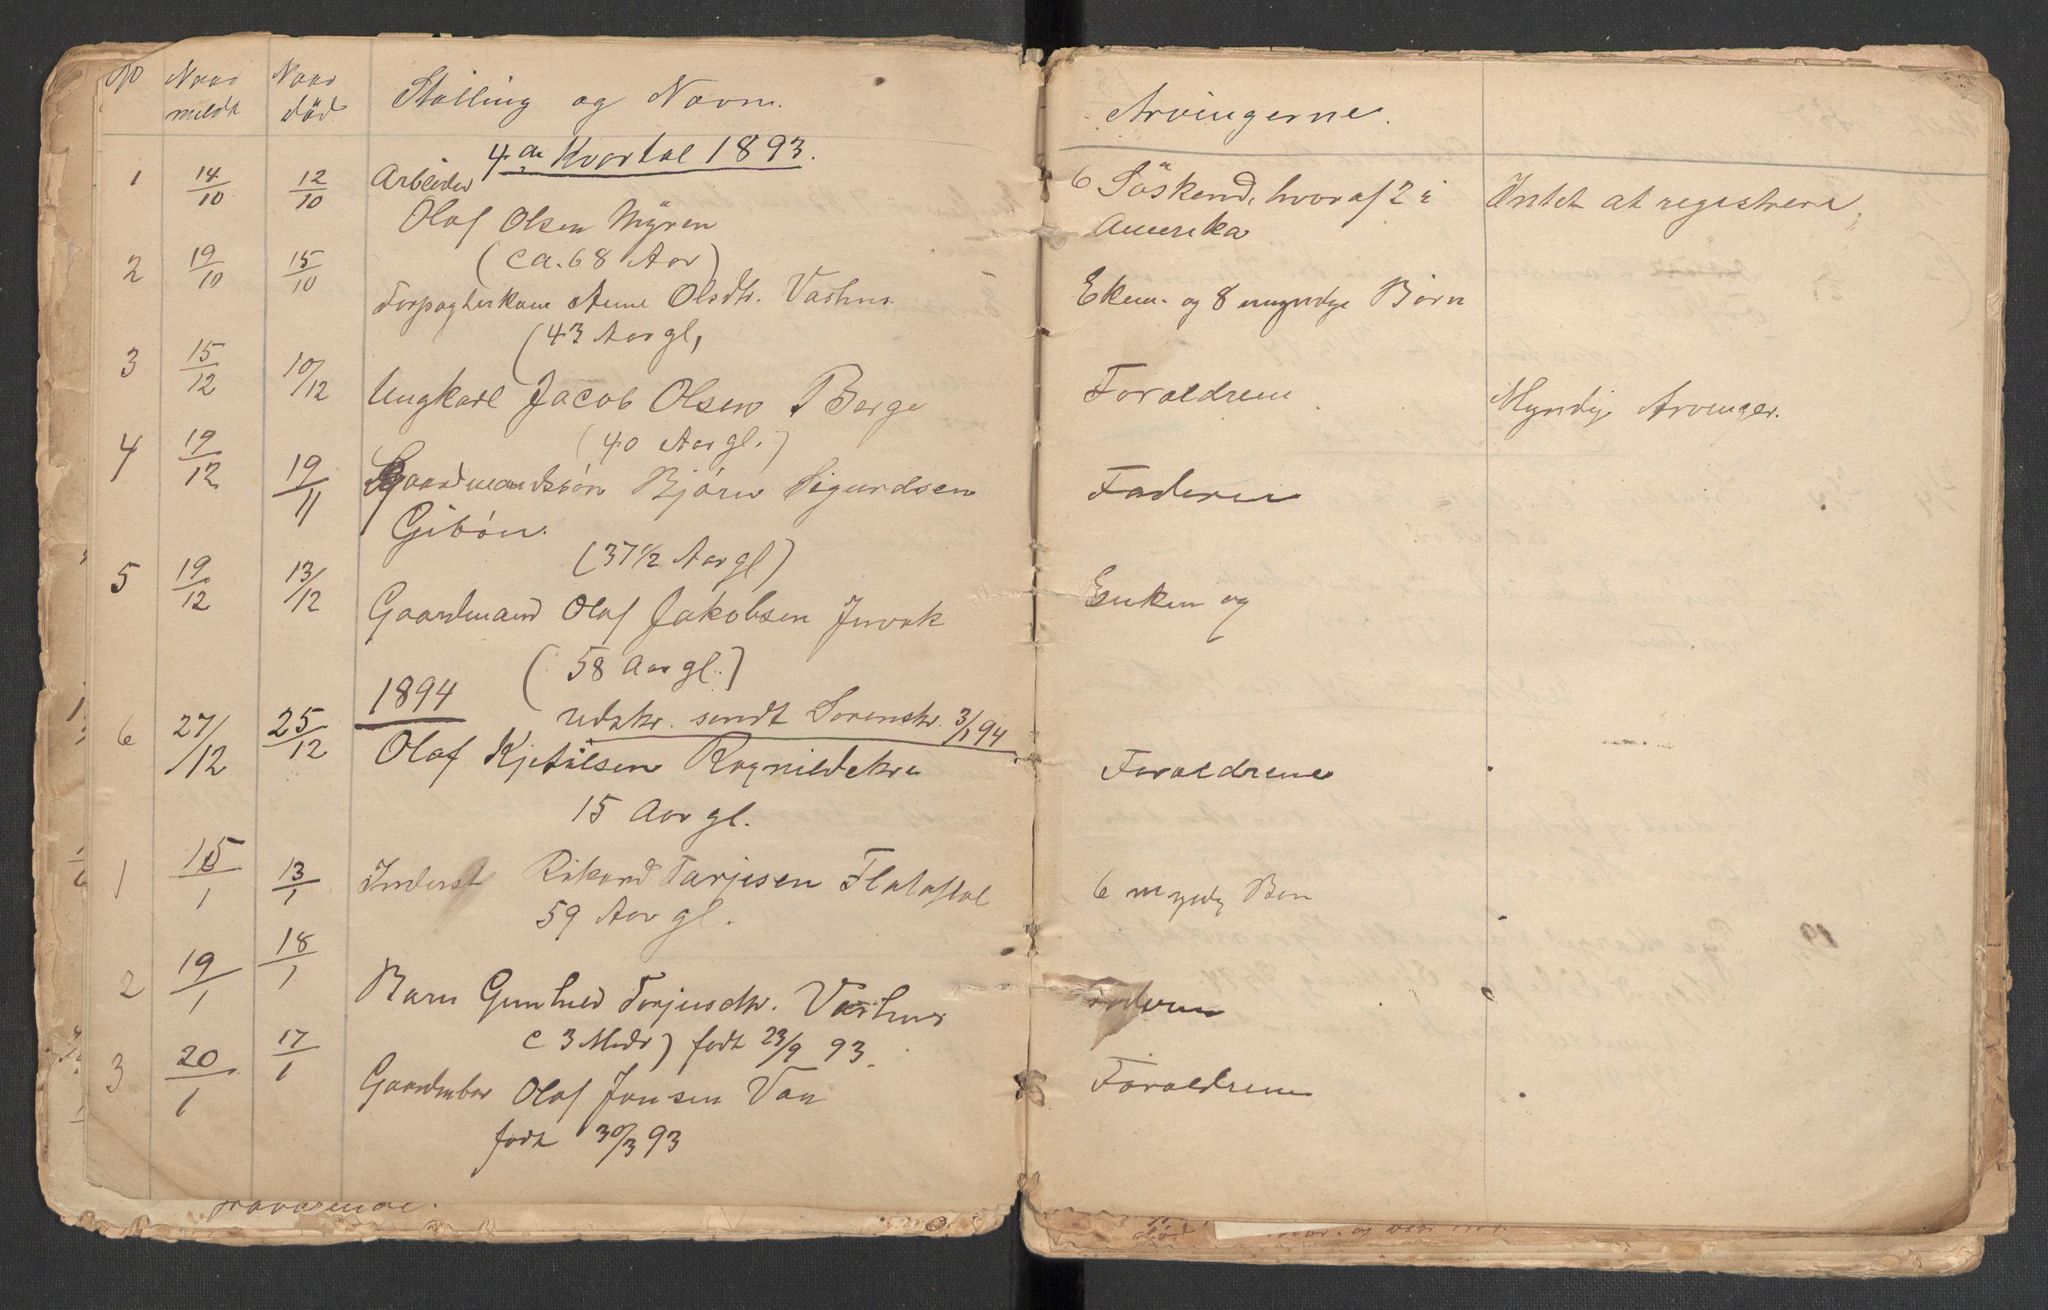 No Naar Naar Stilling og Navn. Arvingerne.
meldt död
4de Kvartal 1893.
1 14/10 12/10 Arbeider 6 Söskend, hvoraf 2 i Intet at registrere
Olaf Olsen Myren Amerika
(ca. 68 Aar)
2 19/10 15/10 Forpagterkone Anne Olsdtr. Vashus Ekem. og 8 myndge Börn
(43 Aar gl,
3 15/12 10/12 Ungkarl Jacob Olsen Berge Foraldrene Myndige Arvinger.
(40 Aar gl.)
4 19/12 19/11 Gaardmandssön Björn Sigurdsen Faderen
Giböen.
(37 1/2 Aar gl)
5 19/12 13/12 Gaardmand Olaf Jakobsen Juvak Enken og
(58 Aar gl.)
1894
udskr. sendt Sorenskr. 3/1 94
6 27/12 25/12 Olaf Kjetilsen Foraldrene
15 Aar gl.
1 15/1 13/1 Inderst Rikard Tarjesen 6 myndg Bön
59 Aar gl.
2 19/1 18/1 Barn Gunhild Torjusdtr. Vashus Faderen
c 3 Mdr) født 23/9 93.
3 20/1 17/1 Gaardmbar Olaf Jonsen Vaa Foraldrene
født 30/3 93